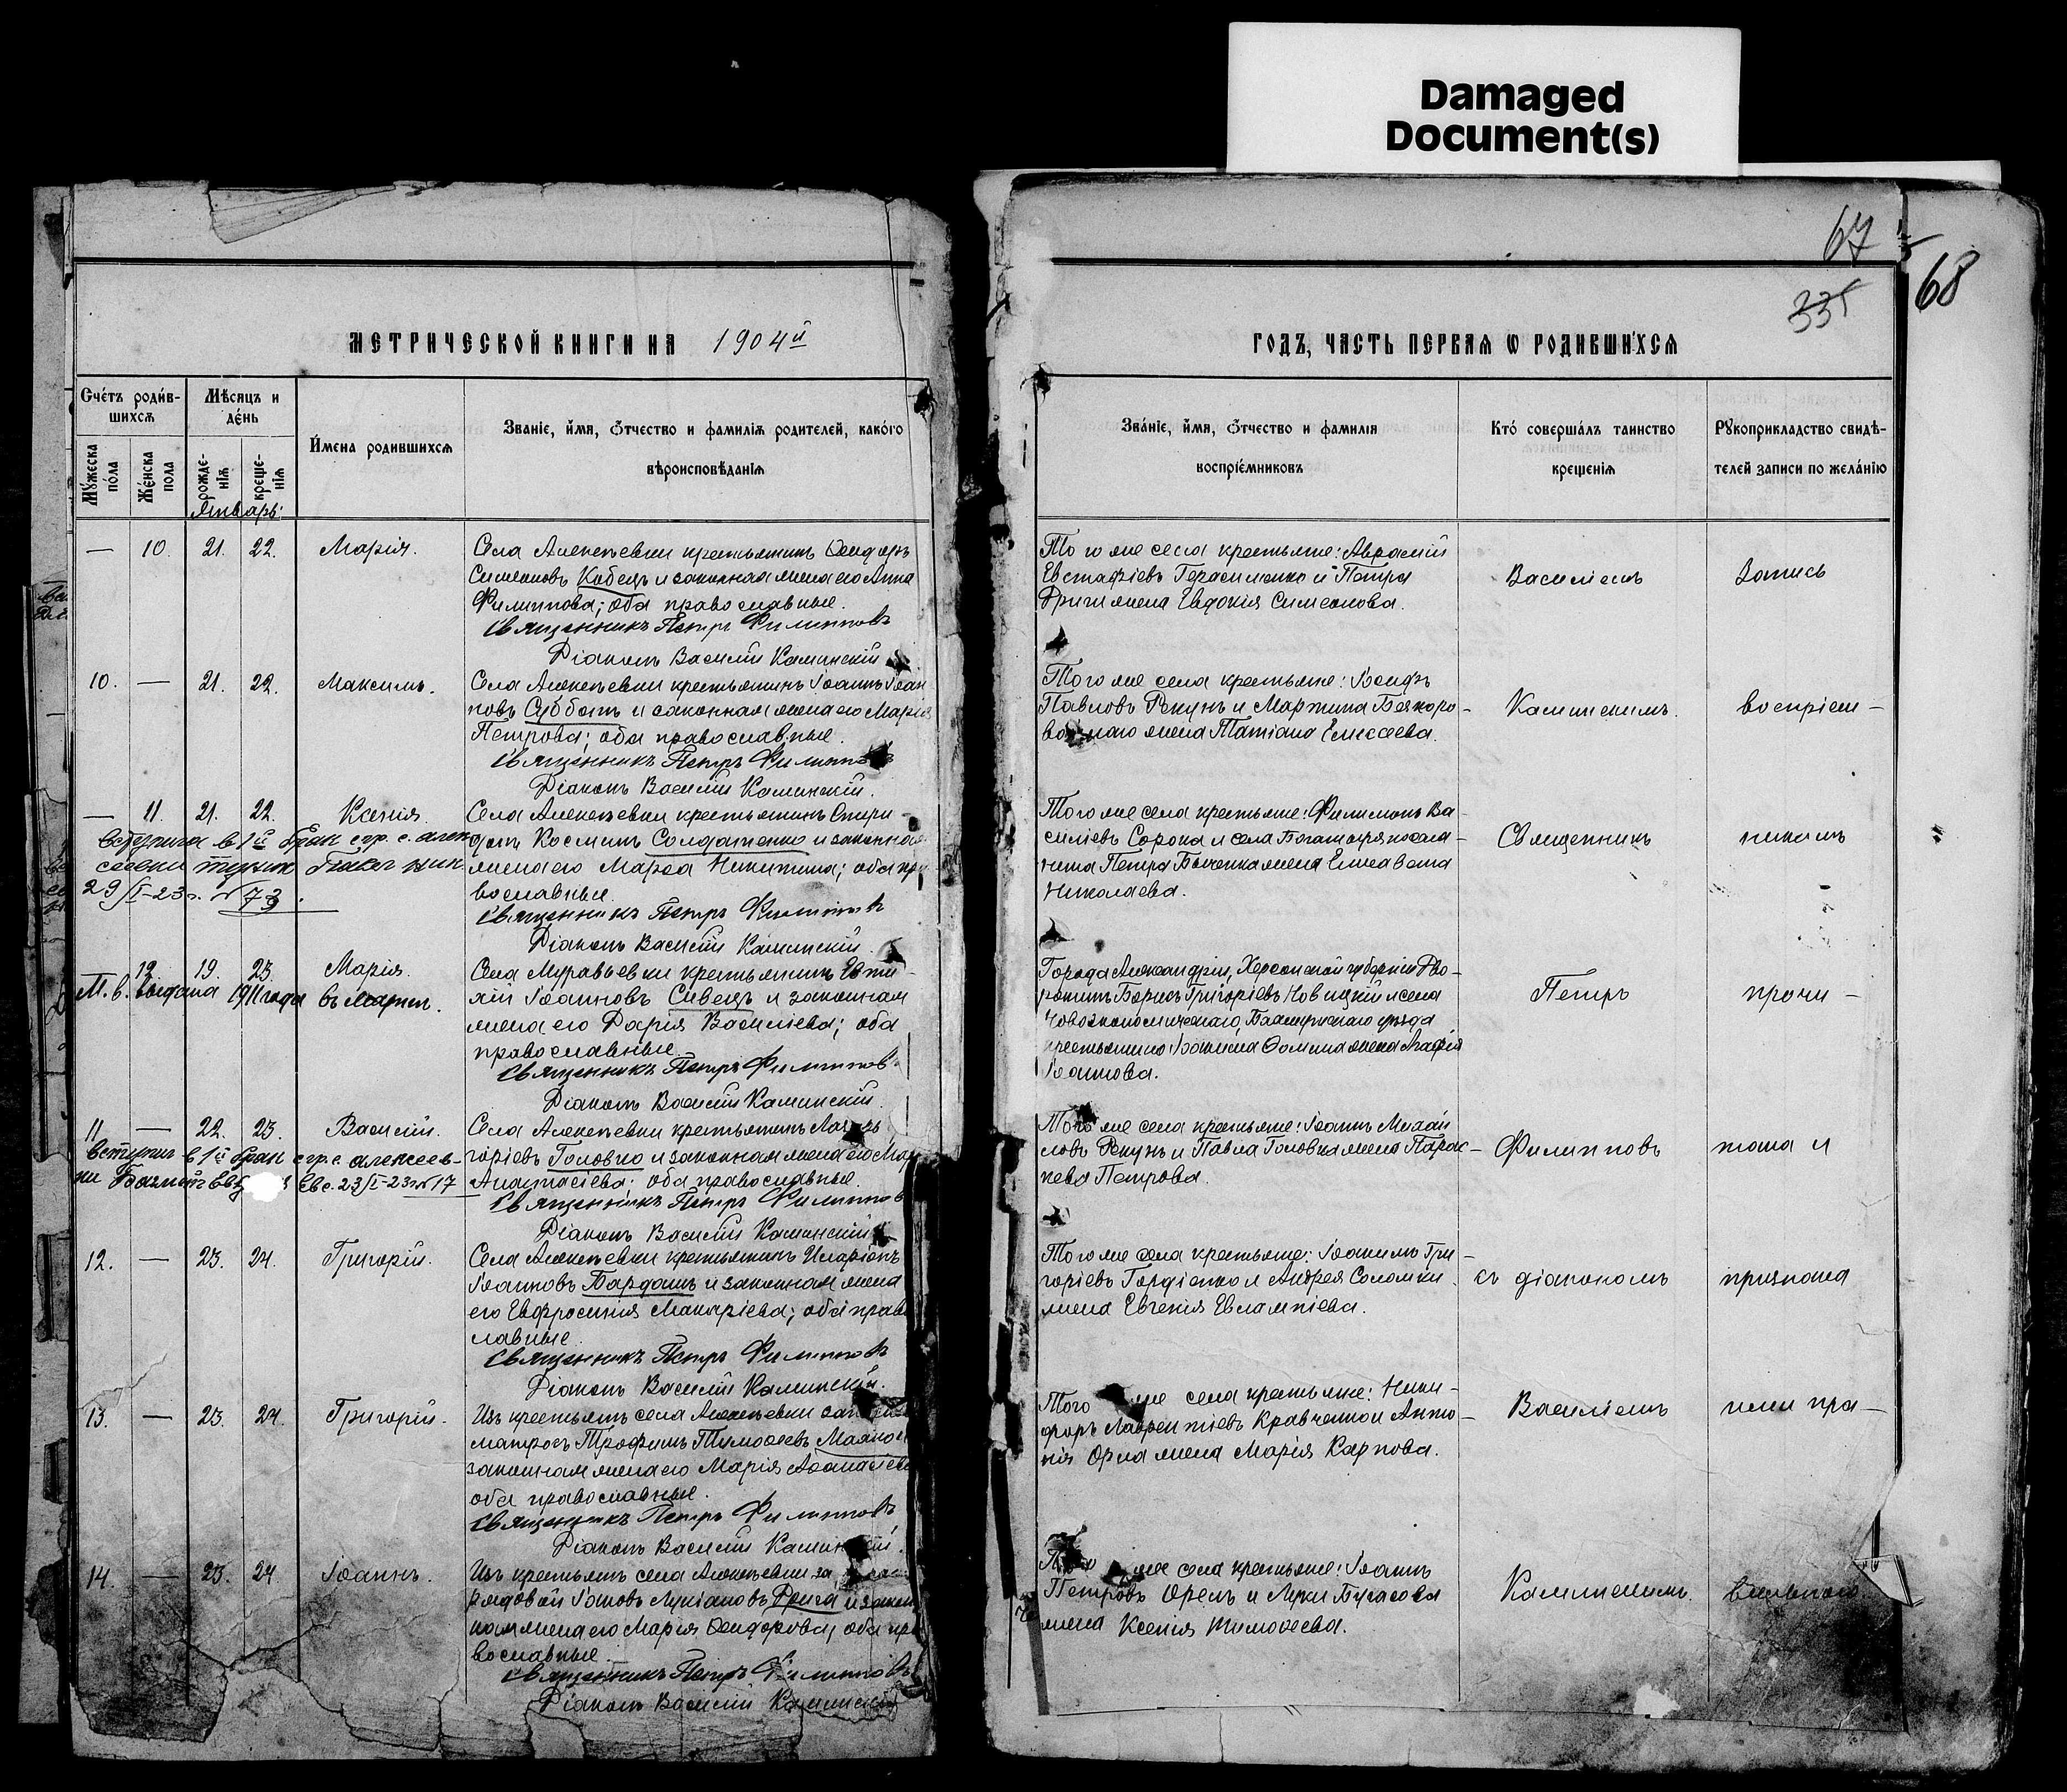 Damaged
Document(s)
67
68
335
МЕТРИЧЕСКОЙ КНИГИ НА 1904й
ГОДЪ, ЧАСТЬ ПЕРВАЯ Ѡ РОДИВШИХСЯ
Счетъ родив-
шихся
Мѣсяцъ и
день
Мужеска
пола
Женска
пола
рожде-
нія
креще-
нія
Имена родившихся
Званіе, имя, Ѿчество и фамилія родителей, какого
вѣроисповѣданія
Званіе, имя, Ѿчество и фамилія
воспріемниковъ
Кто совершалъ таинство
крещенія
Рукоприкладство свидѣ-
телей записи по желанію
Январь:
— 10. 21. 22. Марія.
Села Алексѣевки крестьянинъ Ѳеодоръ
Симеоновъ Кобецъ и законная жена его Анна
Филиппова; оба православные.
Священникъ Петръ Филипповъ
Діаконъ Василій Каминскій
Того же села крестьяне: Аврамій
Евстафіевъ Герасименко и Петра
Дриги жена Евдокія Симеонова.
Василіемъ
Запись
10. — 21. 22. Максимъ.
Села Алексѣевки крестьянинъ Іоаннъ Іоан
новъ Субботъ и законная жена его Марія
Петрова; оба православные.
Священникъ Петръ Филипповъ
Діаконъ Василій Каминскій.
Того же села крестьяне: Іосифъ
Павловъ Рекунъ и Мартина
жена Татіана Елисеева.
Каминскимъ.
воспріем-
— 11. 21. 22. Ксенія.
вступила в 1й брак
29/I-23г. №73.
Села Алексѣевки крестьянинъ Спири-
донъ Косминъ Солдатенко и законная
жена его Марѳа Никитина; оба пра
вославные.
Священникъ Петръ Филипповъ
Діаконъ Василій Каминскій.
Того же села крестьяне: Филимонъ Ва-
силіевъ Сорока и села Богатыря поселя-
нина Петра жена Елисавета
Николаева.
Священникъ
никомъ
12. 19. 23. Марія.
М. в. выдана 1911 года въ Мартѣ.
Села Муравьевки крестьянинъ Евти-
мій Іоанновъ Сивецъ и законная
жена его Дарія Василіева; оба
православные.
Священникъ Петръ Филипповъ
Діаконъ Василій Каминскій.
Города Александріи, Херсонской губерніи Дво-
рянинъ Борисъ Григоріевъ Новицкій и села
Новоэкономическаго, Бахмутскаго уѣзда
крестьянина Ѳомина жена Агафія
Іоаннова.
Петръ
прочи-
11 — 22. 23. Василій.
вступил в 1й брак с гр. с. алексеев-
ки 23/I-23г. №17
Села Алексѣевки крестьянинъ
горіевъ Головко и законная жена его
Анастасіева; оба православные.
Священникъ Петръ Филиппов
Діаконъ Василій Каминскій.
Того же села крестьяне: Іоаннъ Михаи
ловъ Рекунъ и Павла Головка жена Парас-
кева Петрова.
Филипповъ
тана и
12. — 23. 24. Григорій.
Села Алексѣевки крестьянинъ Иларіонъ
Іоанновъ Бардашъ и законная жена
его Евфросинія Макаріева; оба право
славные.
Священникъ Петръ Филипповъ
Діаконъ Василій Каминскій.
Того же села крестьяне: Іоакимъ Гри-
горіевъ Гордіенко и Андрея Соломки
жена Евгенія Евлампіева.
съ діакономъ
признана
13. — 23. 24. Григорій.
Изъ крестьянъ села Алексѣевки
матросъ Трофимъ Тимоѳеевъ
законная жена его Марія Аѳанасіева
оба православные.
Священникъ Петръ Филипповъ
Діаконъ Василій Каминскій.
Того же села крестьяне: Ники-
форъ Лаврентіевъ Кравченко и Анто-
нія Орла жена Марія Карпова.
Василіемъ
ими пра-
14. — 23. 24 Іоаннъ.
Изъ крестьянъ села Алексѣевки
рядовой Іаковъ Лукіановъ Дрига и закон
ная жена его Марія Ѳеодорова; оба пра
вославные.
Священникъ Петръ Филипповъ
Діаконъ Василій Каминскій
Того же села крестьяне: Іоаннъ
Петровъ Орелъ и Луки
жена Ксенія Тимоѳеева.
Каминскимъ.
вильною